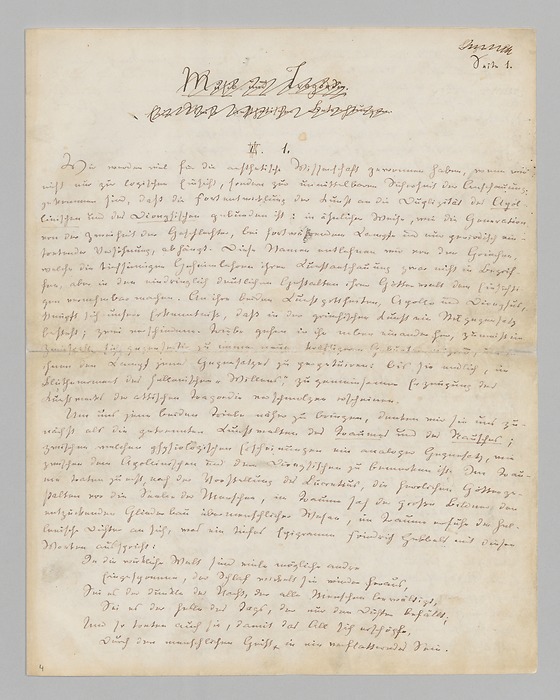 Seite 1.
Musik und Tragödie.
1.
Wir werden viel für die aesthetische Wissenschaft gewonnen haben, wenn wir
nicht nur zur logischen Einsicht, sondern zur unmittelbaren Sicherheit der Anschauung
gekommen sind, daß die Fortentwicklung der Kunst an die Duplizität des Apol-
linischen und des Dionysischen gebunden ist: in ähnlicher Weise, wie die Generation
von der Zweiheit der Geschlechter, bei fortwährendem Kampfe und nur periodisch ein-
tretender Versöhnung, abhängt. Diese Namen entlehnen wir von den Griechen,
welche die tiefsinnigen Geheimlehren ihrer Kunstanschauung zwar nicht in Begrif-
fen, aber in den eindringlich deutlichen Gestalten ihrer Götterwelt dem Einsichti-
gen vernehmbar machen. An ihre beiden Kunstgottheiten, Apollo und Dionysus,
knüpft sich unsere Erkenntniß, daß in der griechischen Kunst ein Stilgegensatz
besteht: zwei verschiedene Triebe gehen in ihr neben einander her, zumeist im
Zwiespalt sich gegenseitig zu immer neuen kräftigeren Geburten reizend, um in
ihnen den Kampf jenes Gegensatzes zu perpetuiren: bis sie endlich, im
Blüthemoment des hellenischen „Willens“, zu gemeinsamer Erzeugung des
Kunstwerks der attischen Tragoedie verschmolzen erscheinen.
Um uns jene beiden Triebe näher zu bringen, denken wir sie uns zu-
nächst als die getrennten Kunstwelten des Traumes und des Rausches;
zwischen welchen physiologischen Erscheinungen ein analoger Gegensatz, wie
zwischen dem Apollinischen und dem Dionysischen zu bemerken ist. Im Trau-
me traten zuerst, nach der Vorstellung des Lucretius, die herrlichen Götterge-
stalten vor die Seelen der Menschen, im Traume sah der große Bildner den
entzückenden Gliederbau übermenschlicher Wesen, im Traume erfuhr der hel-
lenische Dichter an sich, was ein tiefes Epigramm Friedrich Hebbels mit diesen
Worten ausspricht:
In die wirkliche Welt sind viele mögliche andre
Eingesponnen, der Schlaf wickelt sie wieder heraus,
Sei es der dunkle der Nacht, der alle Menschen bewältigt,
Sei es der helle des Tags, der nur den Dichter befällt;
Und so treten auch sie, damit das All sich erschöpfe,
Durch den menschlichen Geist in ein verflatterndes Sein.